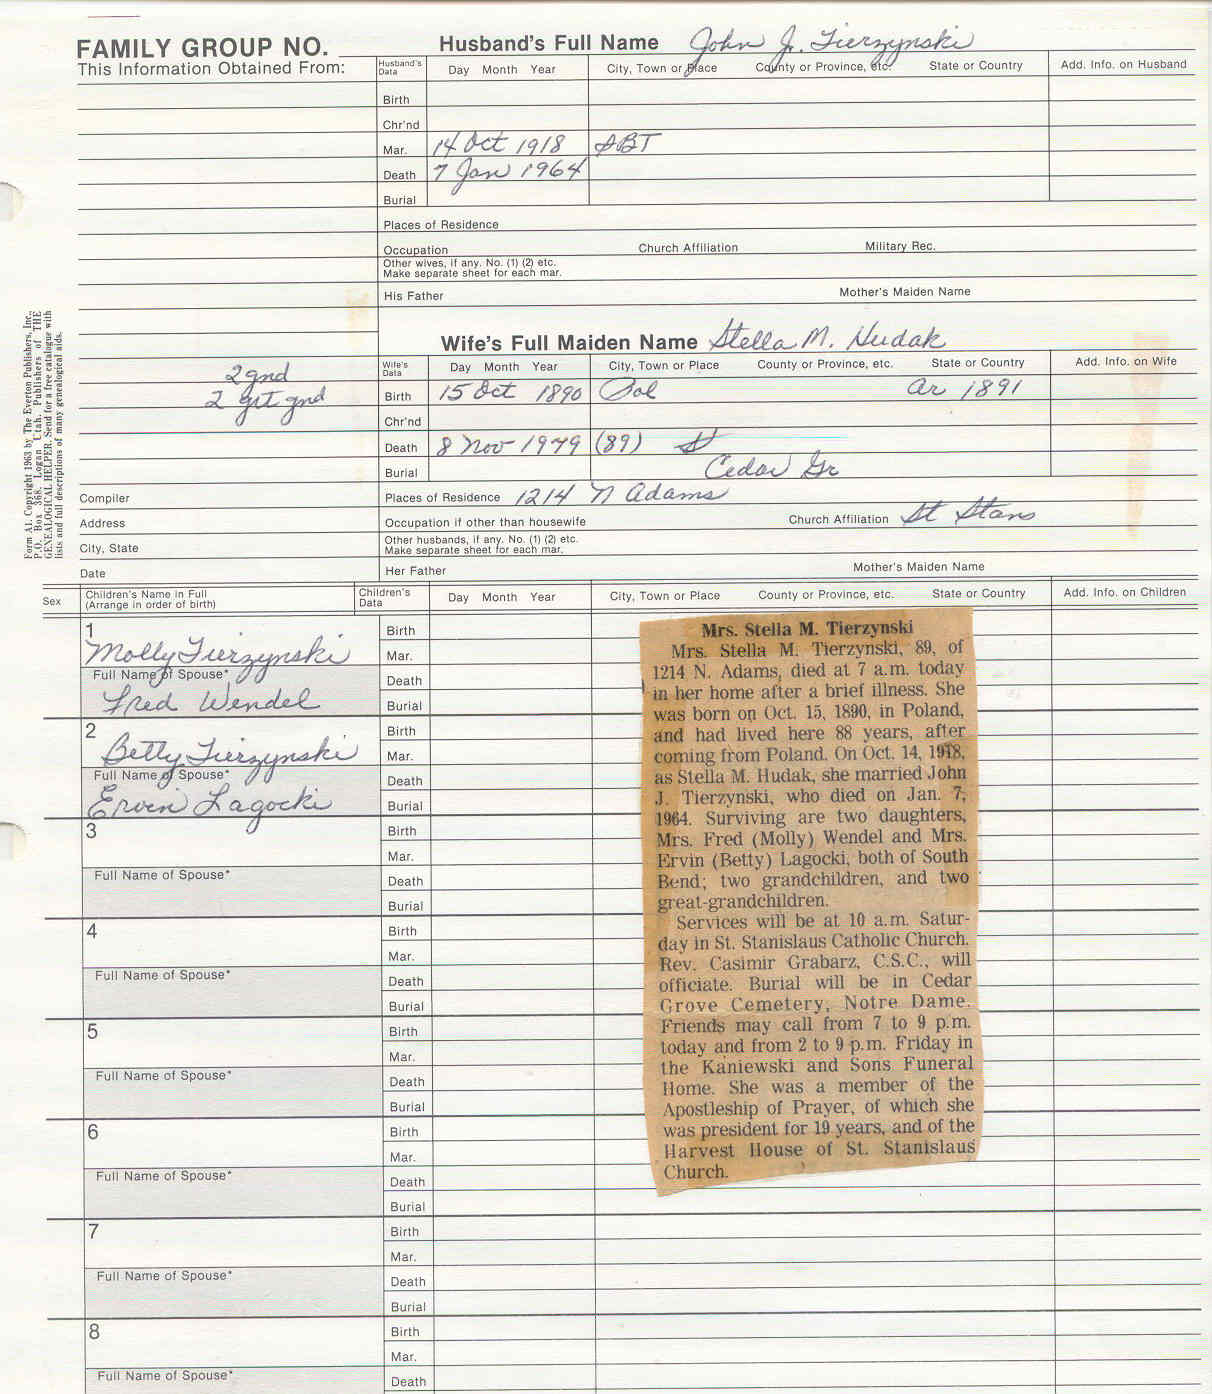 FAMILY GROUP NO.
Husband's Full Name John J. Tierzynski
This Information Obtained From:
Husband's Data Day Month Year City, Town or Place County or Province, etc. State or Country Add. Info. on Husband
Birth
Chr'nd
Mar. 14 Oct 1918
Death 7 Jan 1964
Burial
Places of Residence
Occupation Church Affiliation Military Rec.
Other wives, if any. No. (1) (2) etc.
Make separate sheet for each mar.
His Father Mother's Maiden Name
Wife's Full Maiden Name Stella M. Hudak
Wife's Data Day Month Year City, Town or Place County or Province, etc. State or Country Add. Info. on Wife
2 gnd
2 grt gnd
Birth 15 Oct 1890 Pol Ar 1891
Chr'nd
Death 8 Nov 1979 (89)
Burial Cedar Gr
Compiler
Places of Residence 1214 N Adams
Address
Occupation if other than housewife Church Affiliation St Stans
City, State
Other husbands, if any. No. (1) (2) etc.
Make separate sheet for each mar.
Date
Her Father Mother's Maiden Name
Form A1. Copyright 1963 by The Everton Publishers, Inc.,
P.O. Box 368, Logan Utah. Publishers of THE
GENEALOGICAL HELPER. Send for a free catalogue with
lists and full descriptions of many genealogical aids.
Sex Children's Name in Full (Arrange in order of birth) Children's Data Day Month Year City, Town or Place County or Province, etc. State or Country Add. Info. on Children
1 Birth
Molly Tierzynski Mar.
Full Name of Spouse* Death
Fred Wendel Burial
2 Birth
Betty Tierzynski Mar.
Full Name of Spouse* Death
Ervin Lagocki Burial
3 Birth
Mar.
Full Name of Spouse* Death
Burial
4 Birth
Mar.
Full Name of Spouse* Death
Burial
5 Birth
Mar.
Full Name of Spouse* Death
Burial
6 Birth
Mar.
Full Name of Spouse* Death
Burial
7 Birth
Mar.
Full Name of Spouse* Death
Burial
8 Birth
Mar.
Full Name of Spouse* Death
Mrs. Stella M. Tierzynski
Mrs. Stella M. Tierzynski, 89, of
1214 N. Adams, died at 7 a.m. today
in her home after a brief illness. She
was born on Oct. 15, 1890, in Poland,
and had lived here 88 years, after
coming from Poland. On Oct. 14, 1918,
as Stella M. Hudak, she married John
J. Tierzynski, who died on Jan. 7,
1964. Surviving are two daughters,
Mrs. Fred (Molly) Wendel and Mrs.
Ervin (Betty) Lagocki, both of South
Bend; two grandchildren, and two
great-grandchildren.
Services will be at 10 a.m. Satur-
day in St. Stanislaus Catholic Church.
Rev. Casimir Grabarz, C.S.C., will
officiate. Burial will be in Cedar
Grove Cemetery, Notre Dame.
Friends may call from 7 to 9 p.m.
today and from 2 to 9 p.m. Friday in
the Kaniewski and Sons Funeral
Home. She was a member of the
Apostleship of Prayer, of which she
was president for 19 years, and of the
Harvest House of St. Stanislaus
Church.